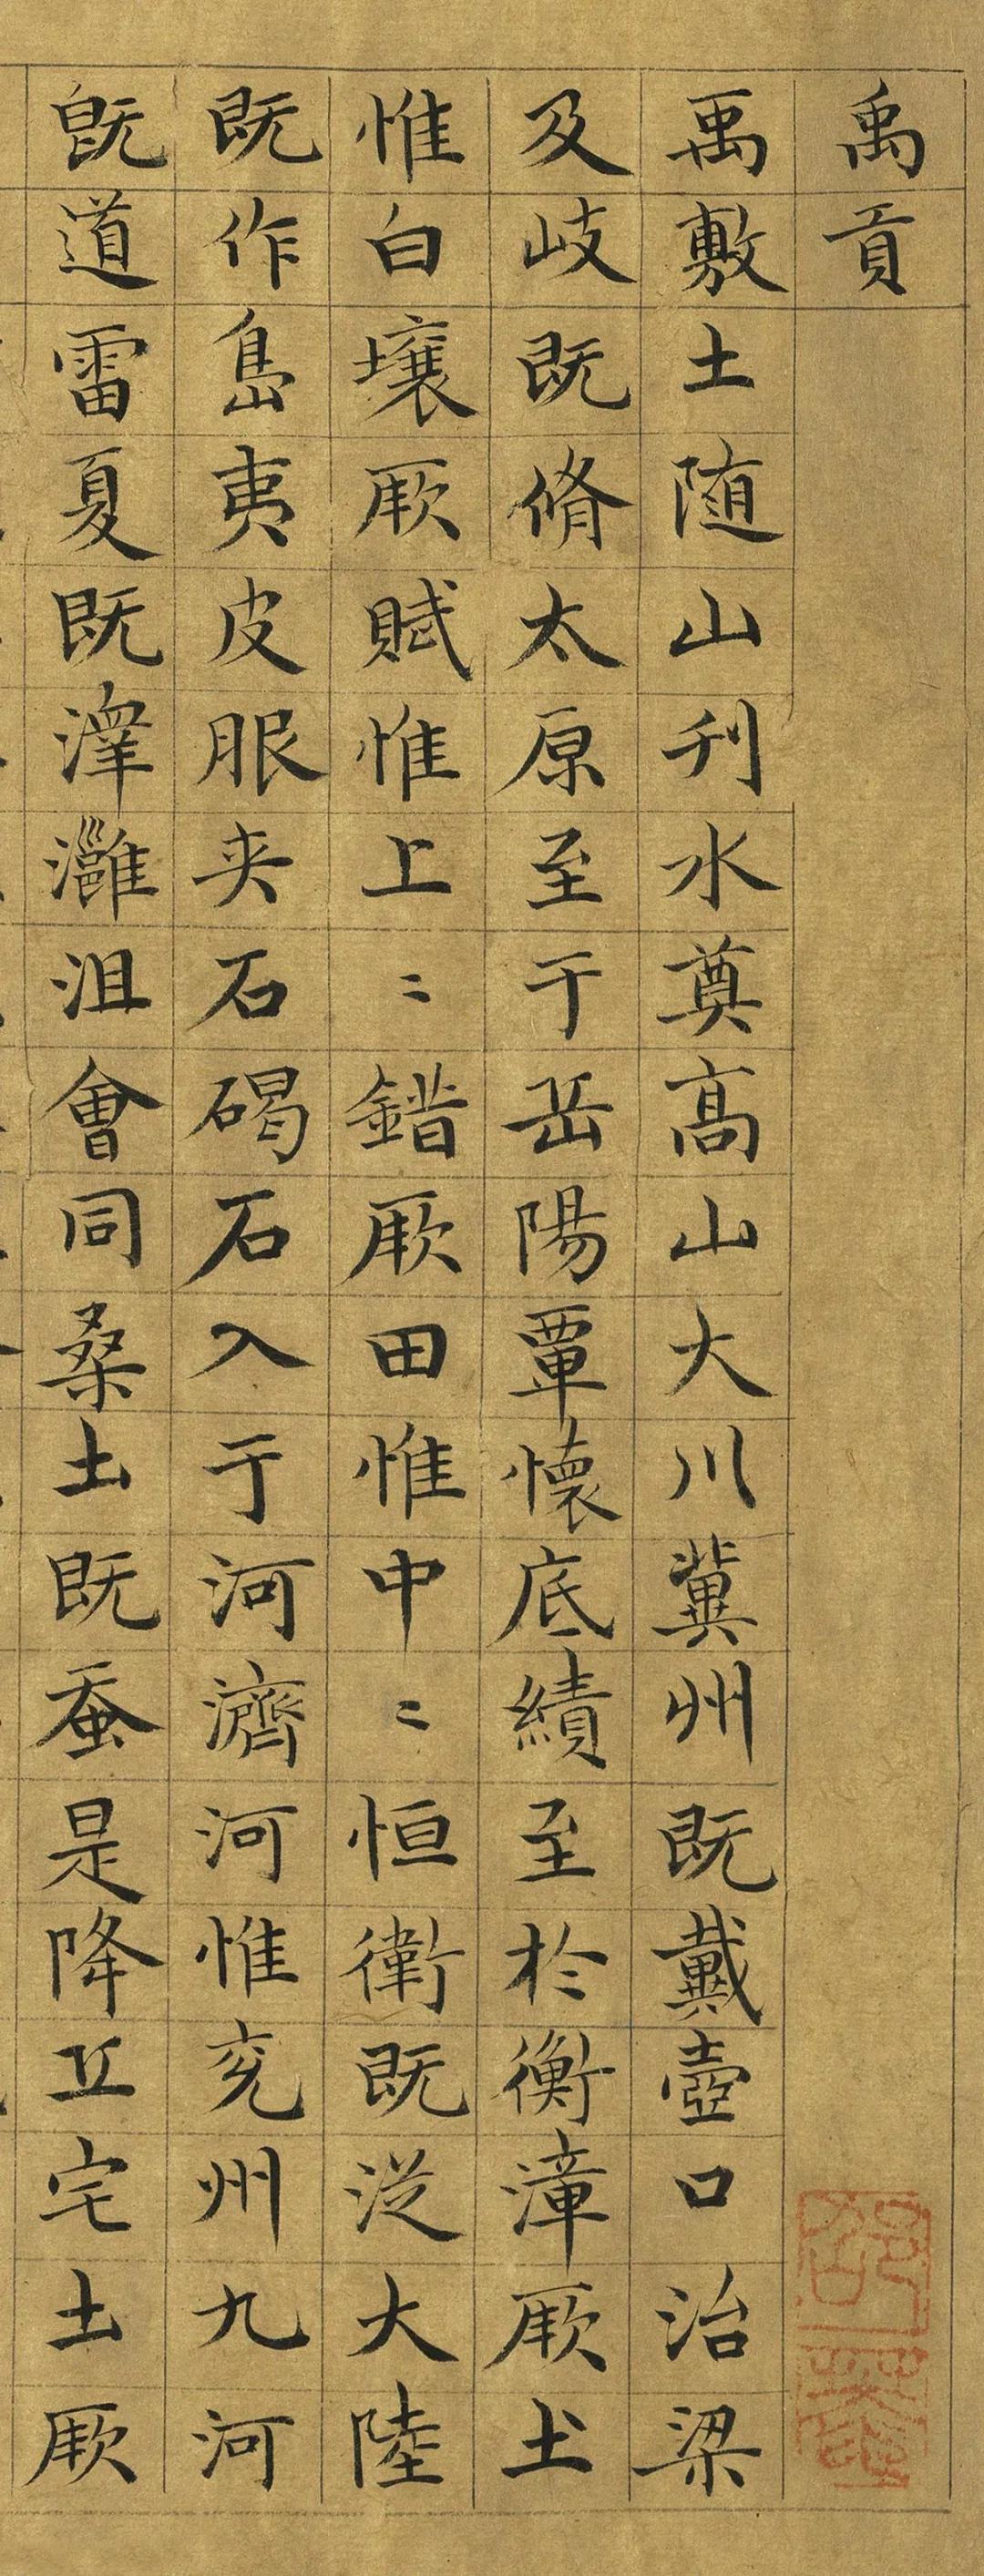 禹貢
禹敷土随山刋水奠髙山大川冀州既戴壺口治梁
及岐既脩太原至于岳陽覃懷底績至於衡漳厥土
惟白壤厥賦惟上〻錯厥田惟中〻恒衛既从大陸
既作島夷皮服夾石碣石入于河濟河惟兖州九河
既道雷夏既澤灉沮會同桒土既蚕是降丘宅土厥